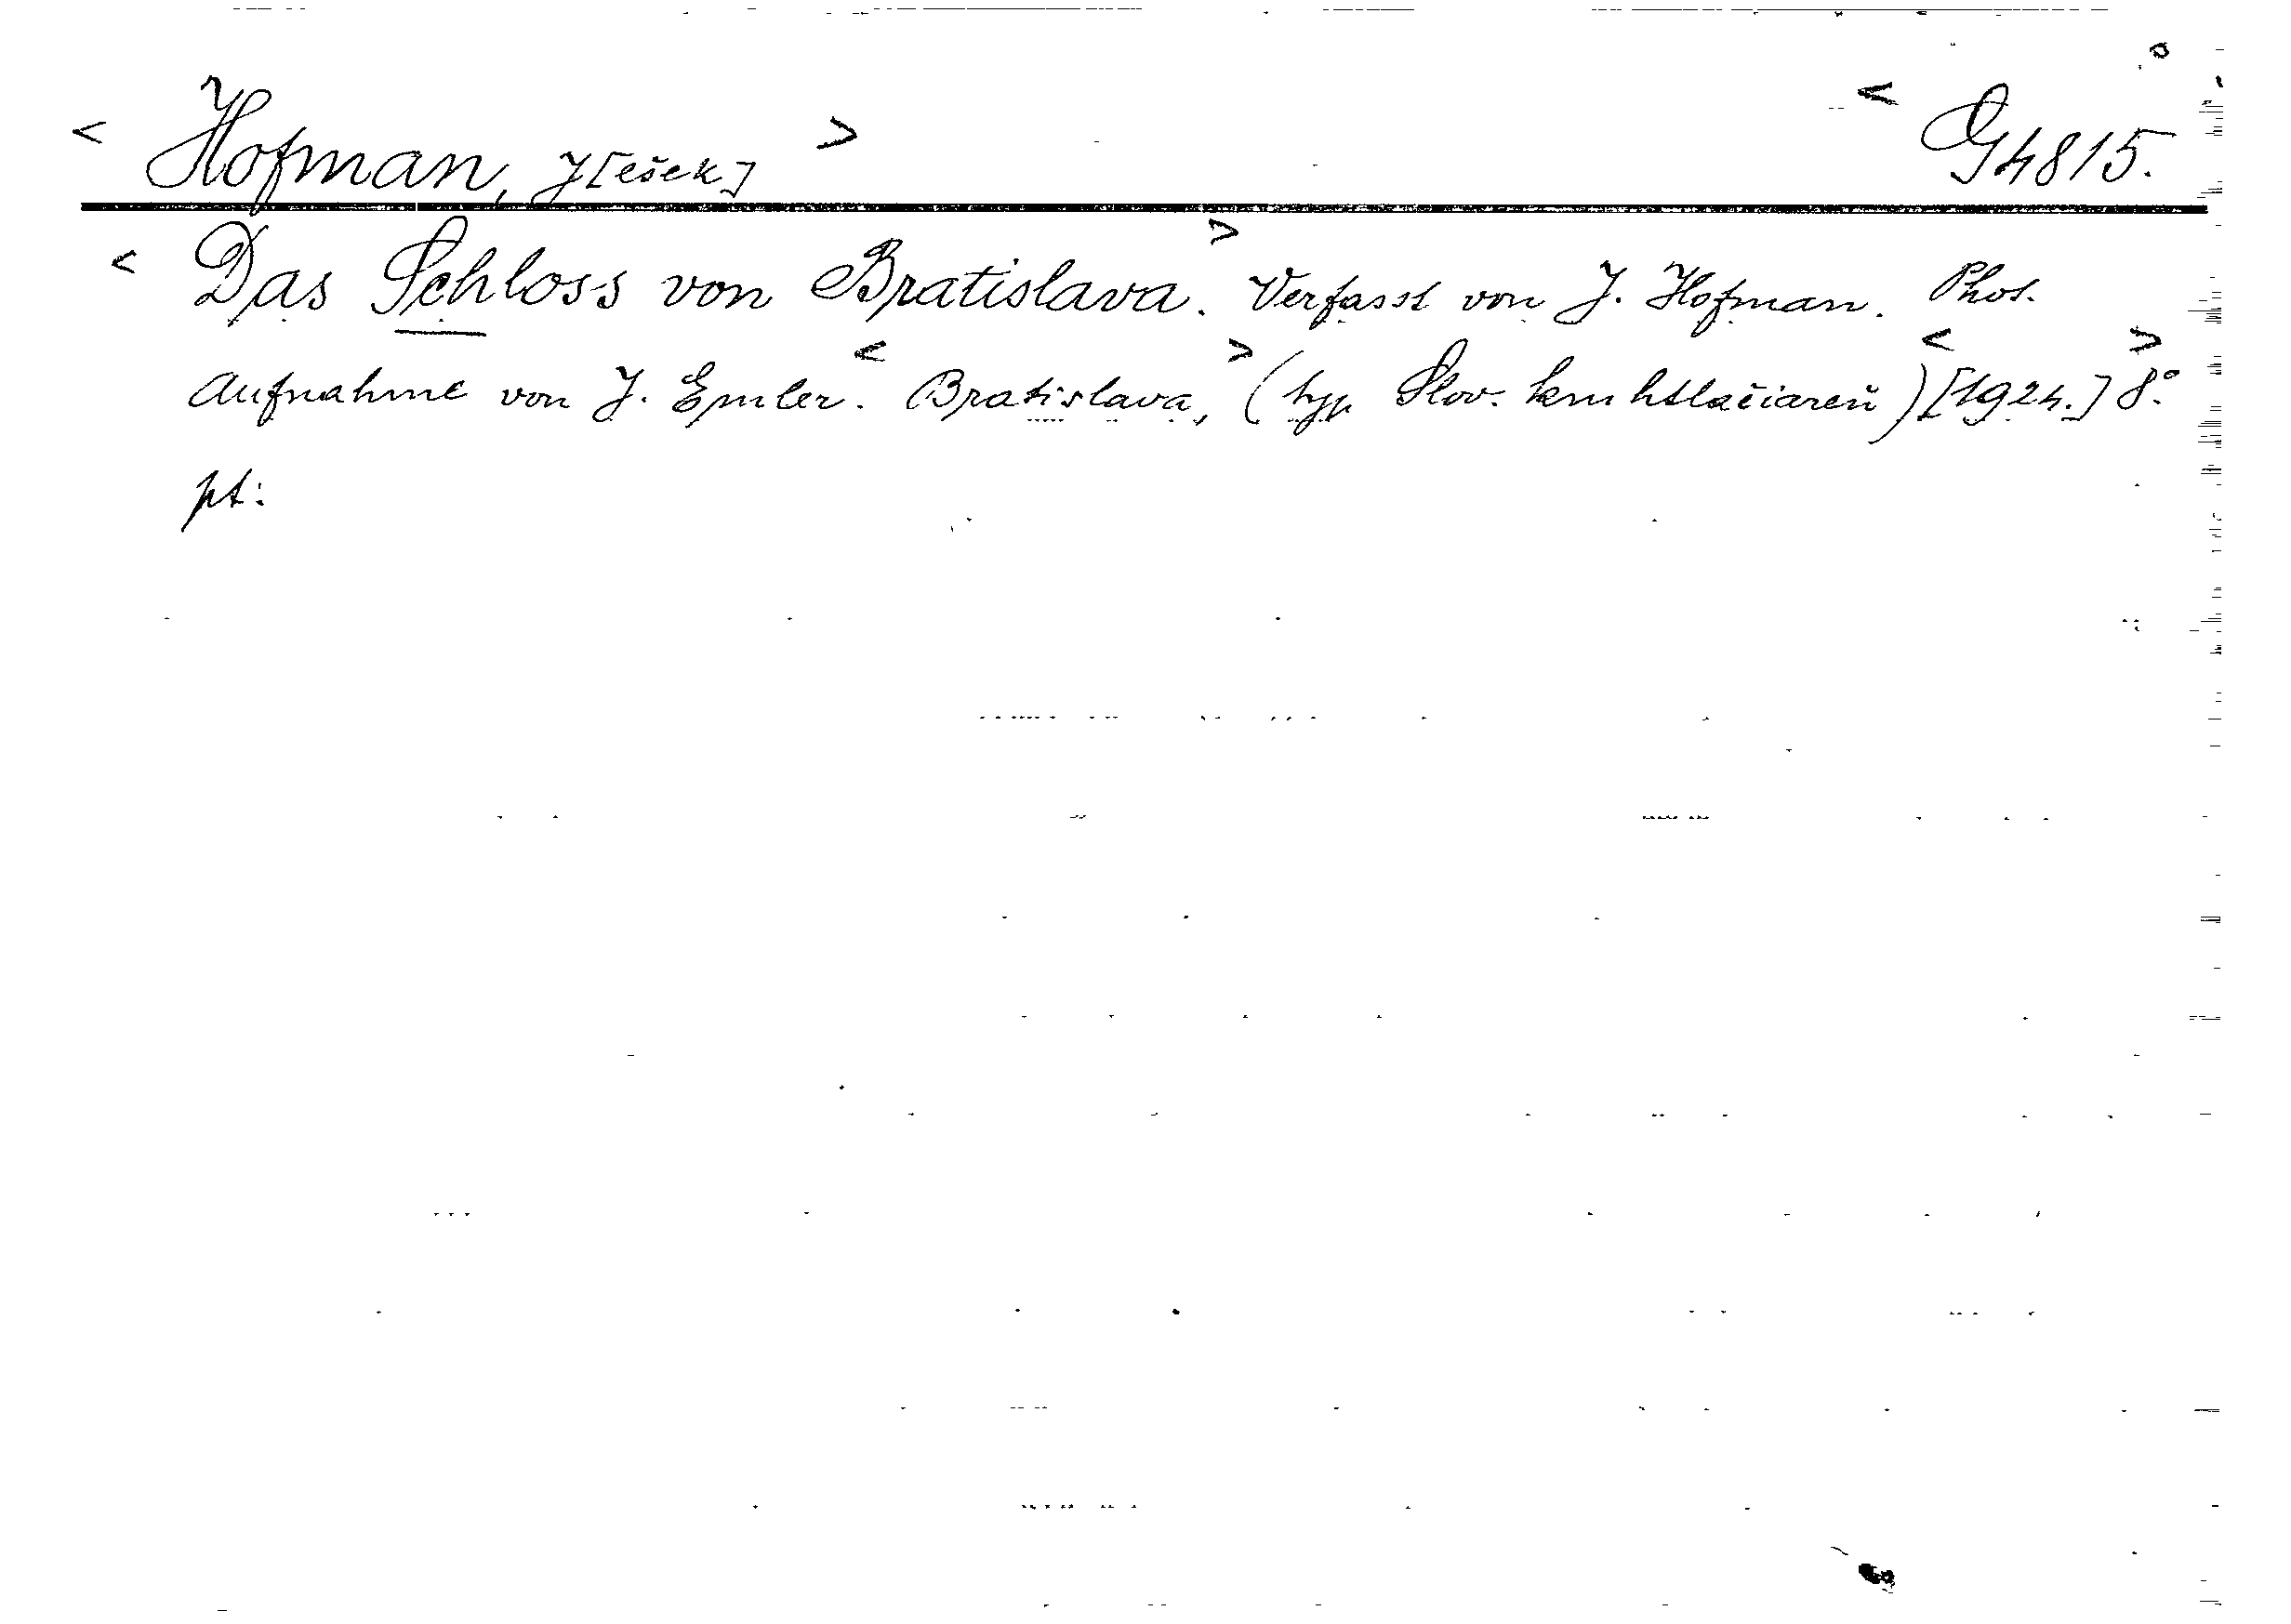 < Hofman, J[ešek] > < G4815.
< Das Schloss von Bratislava. > Verfasst von J. Hofman. Phot.
Aufnahme von J. Emler. < Bratislava, > (typ Slov. knihtlačiareň) < [1924.] > 8°.
pt: